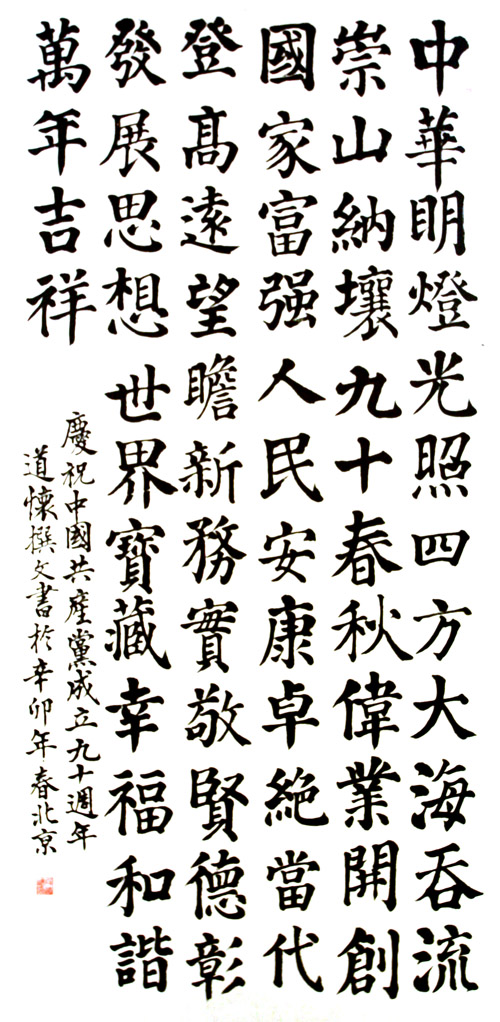 中華明燈光照四方大海吞流
崇山納壤九十春秋偉業開創
國家富强人民安康卓絶當代
登高遠望瞻新務實敬賢德彰
發展思想世界寶藏幸福和諧
萬年吉祥
慶祝中國共產黨成立九十週年
道懷撰文書於辛卯年春北京